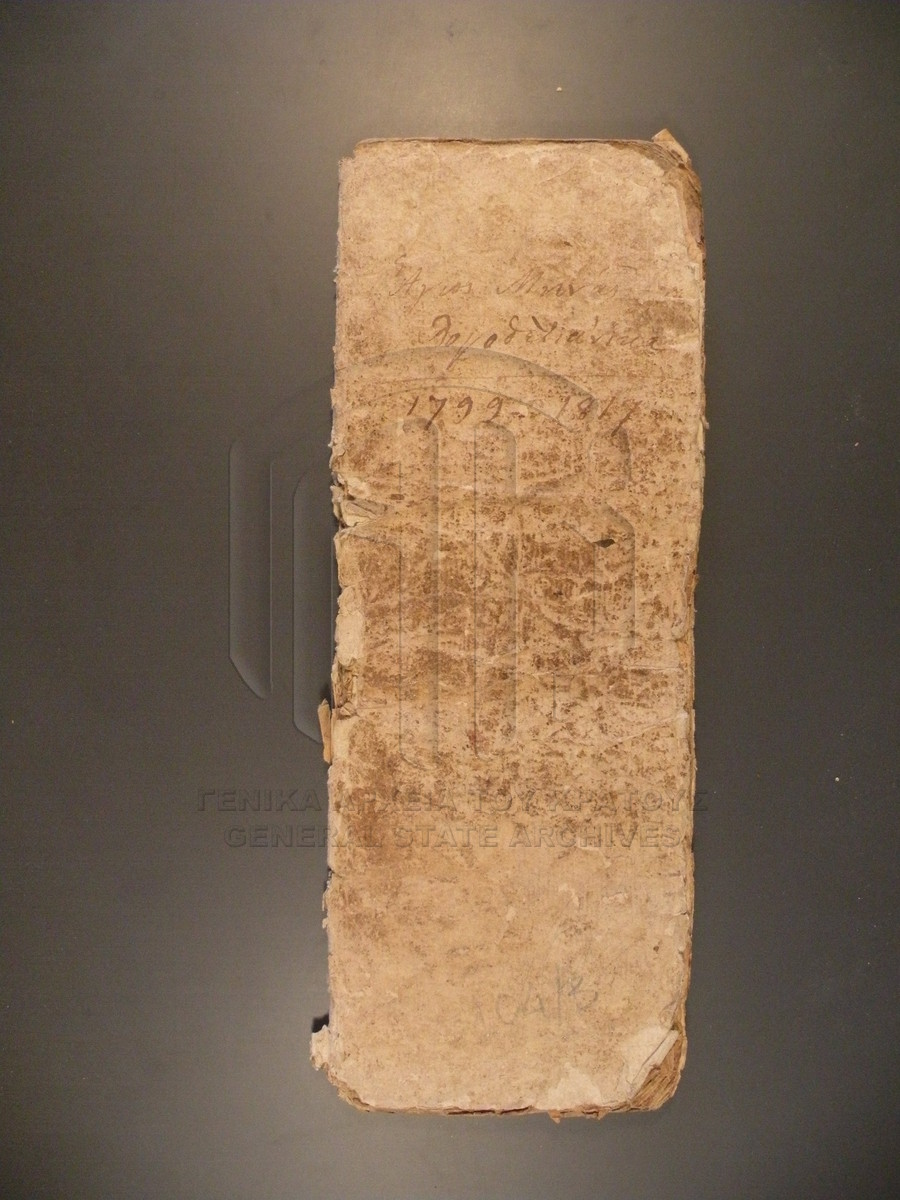 Άγιος Μηνάς
Λογοθετιάνικα
1799 - 1817
ΓΕΝΙΚΑ ΑΡΧΕΙΑ ΤΟΥ ΚΡΑΤΟΥΣ
GENERAL STATE ARCHIVES